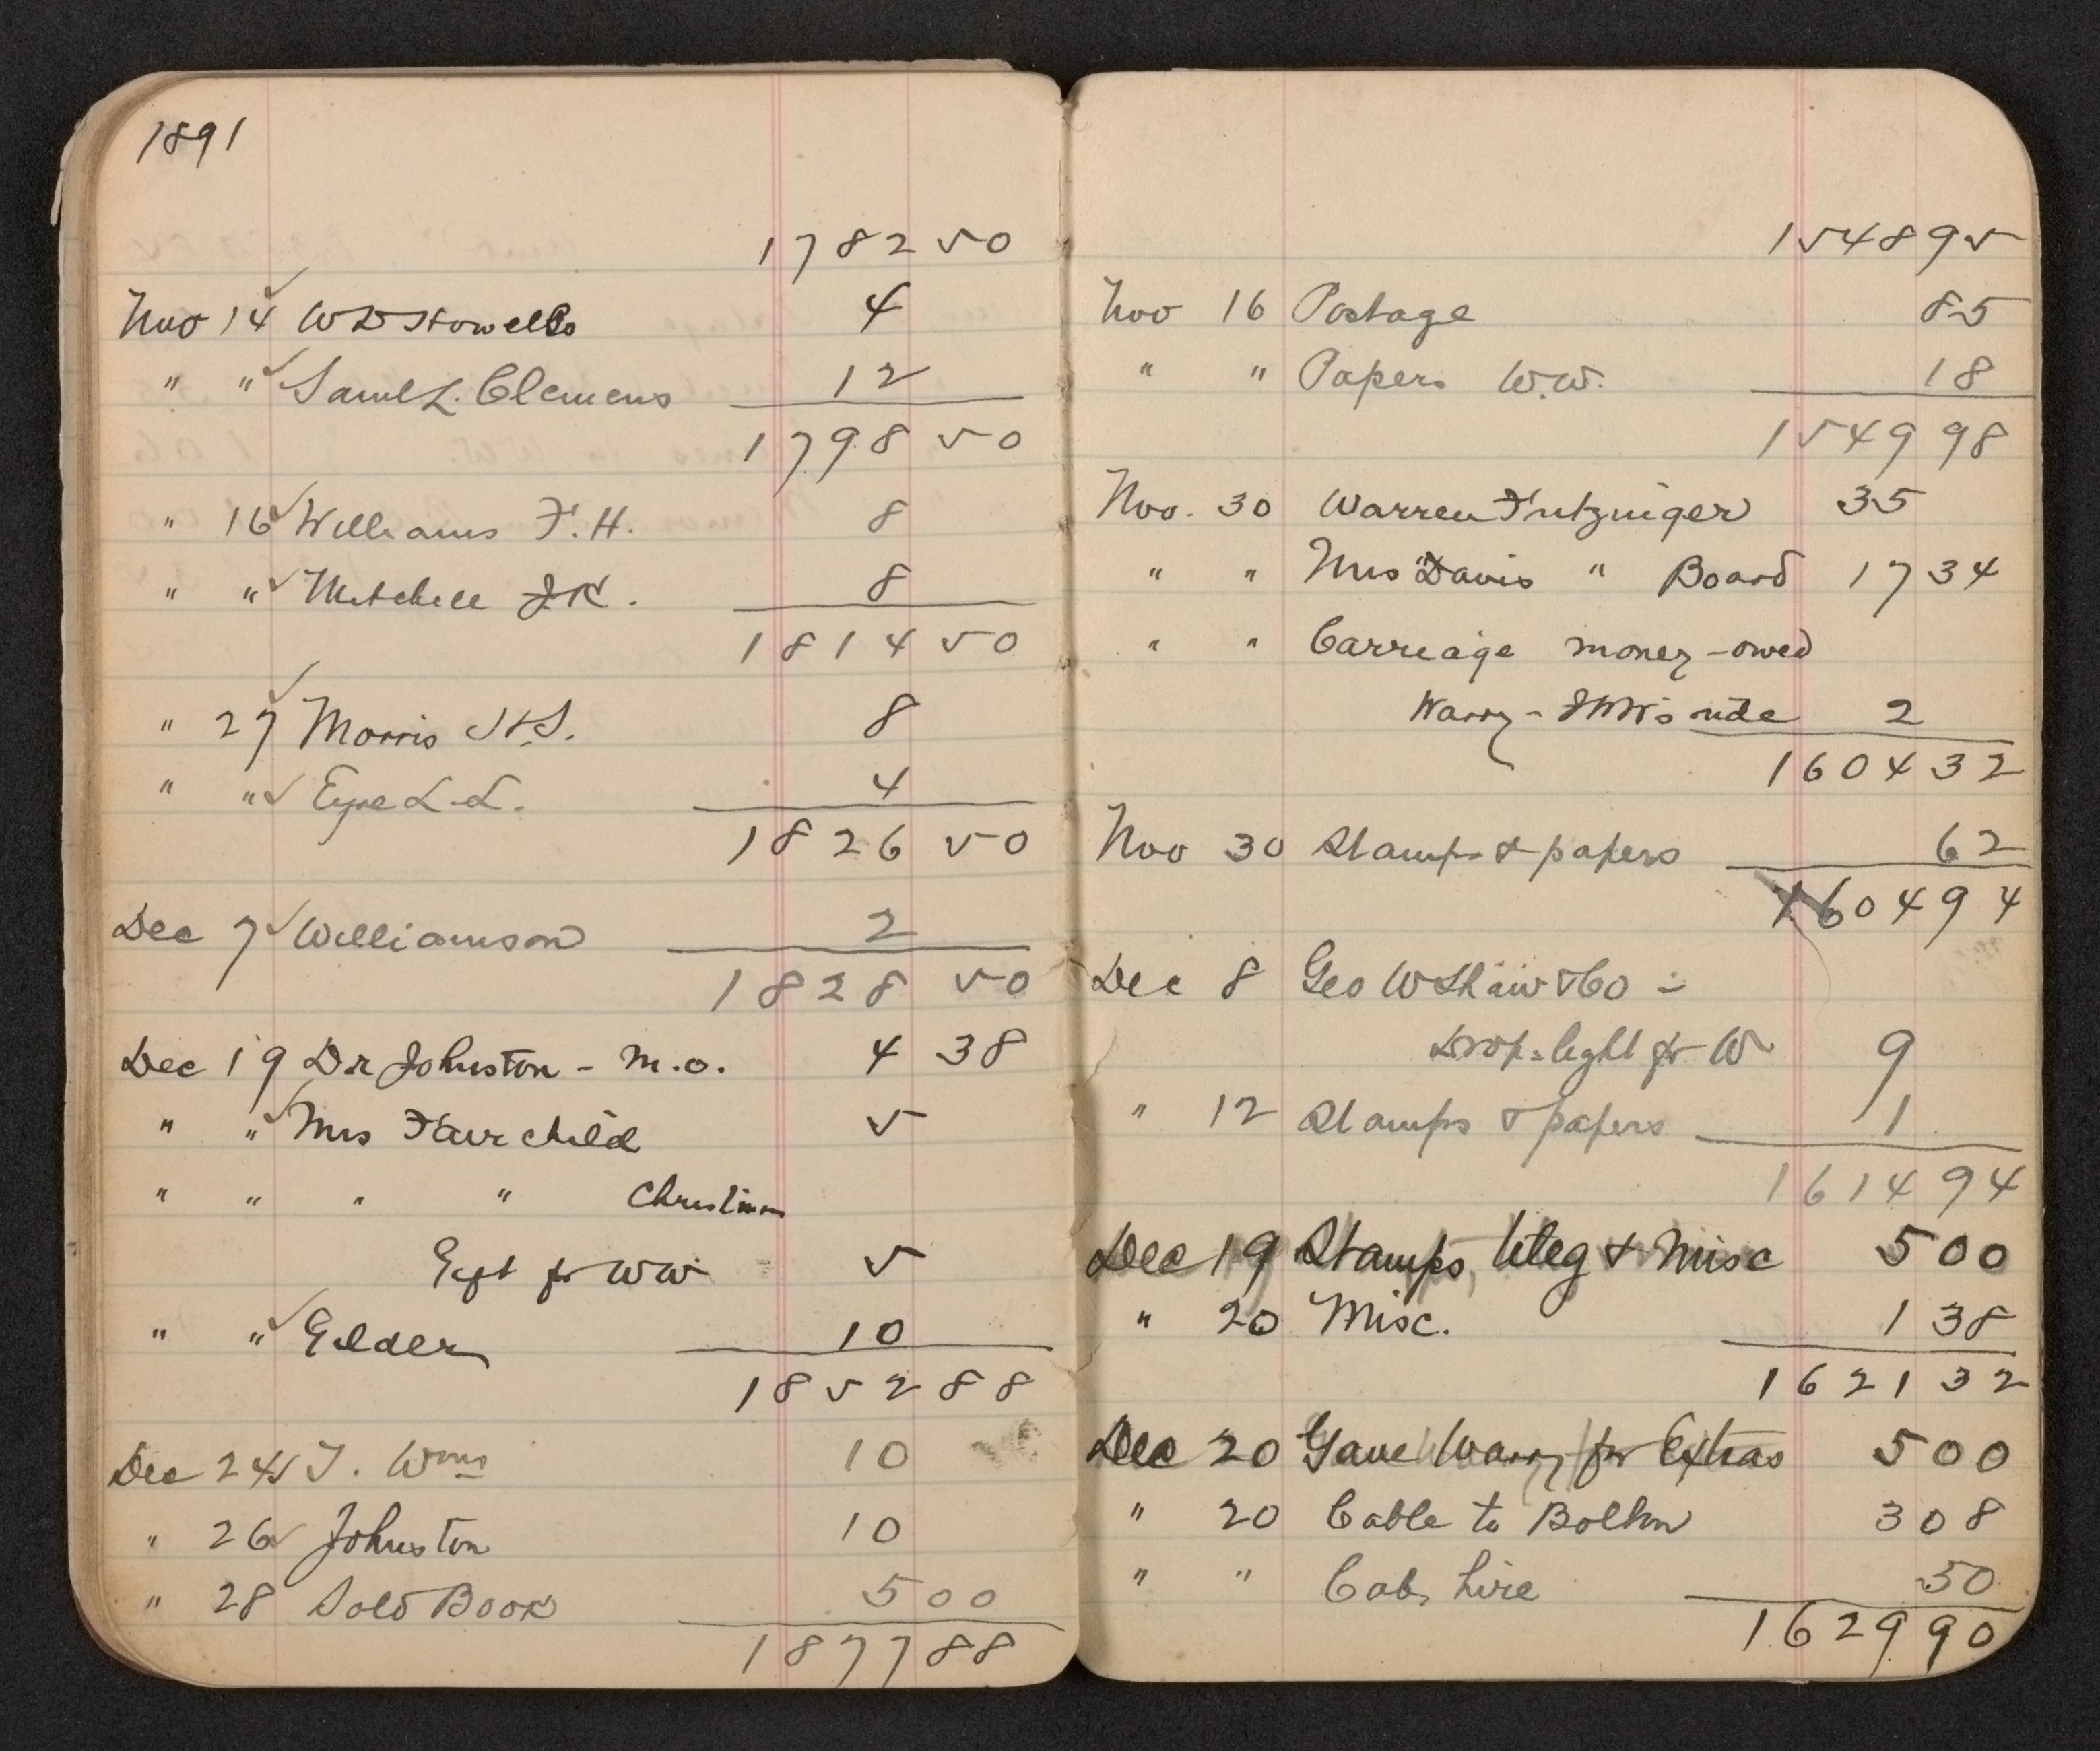 1891
1782 50
Nov 14 W D Howells 4
" " Saml L. Clemens 12
1798 50
" 16 Williams F. H. 8
" " Mitchell J K. 8
1814 50
" 27 Morris H. S. 8
" " Eyre L. L. 4
1826 50
Dec 7 Williamson 2
1828 50
Dec 19 Dr Johnston - m.o. 4 38
" " Mrs Fairchild 5
" " " " Christmas
Gift for WW 5
" " Gilder 10
1852 88
Dec 24 T. Wms 10
" 26 Johnston 10
" 28 Sold Book 5 00
1877 88
1548 95
Nov 16 Postage 85
" " Papers W.W. 18
1549 98
Nov. 30 Warren Fritzinger 35
" " Mrs Davis " Board 17 34
" " Carriage money - owed
Warry - ride 2
1604 32
Nov 30 Stamps & papers 62
1604 94
Dec 8 Geo W Shaw & Co -
Drop-light for W 9
" 12 Stamps & papers 1
1614 94
Dec 19 Stamps, teleg & Misc 5 00
" 20 Misc. 1 38
1621 32
Dec 20 Gave Warry for Extras 5 00
" 20 Cable to Bolton 3 08
" " Cab hire 50
1629 90